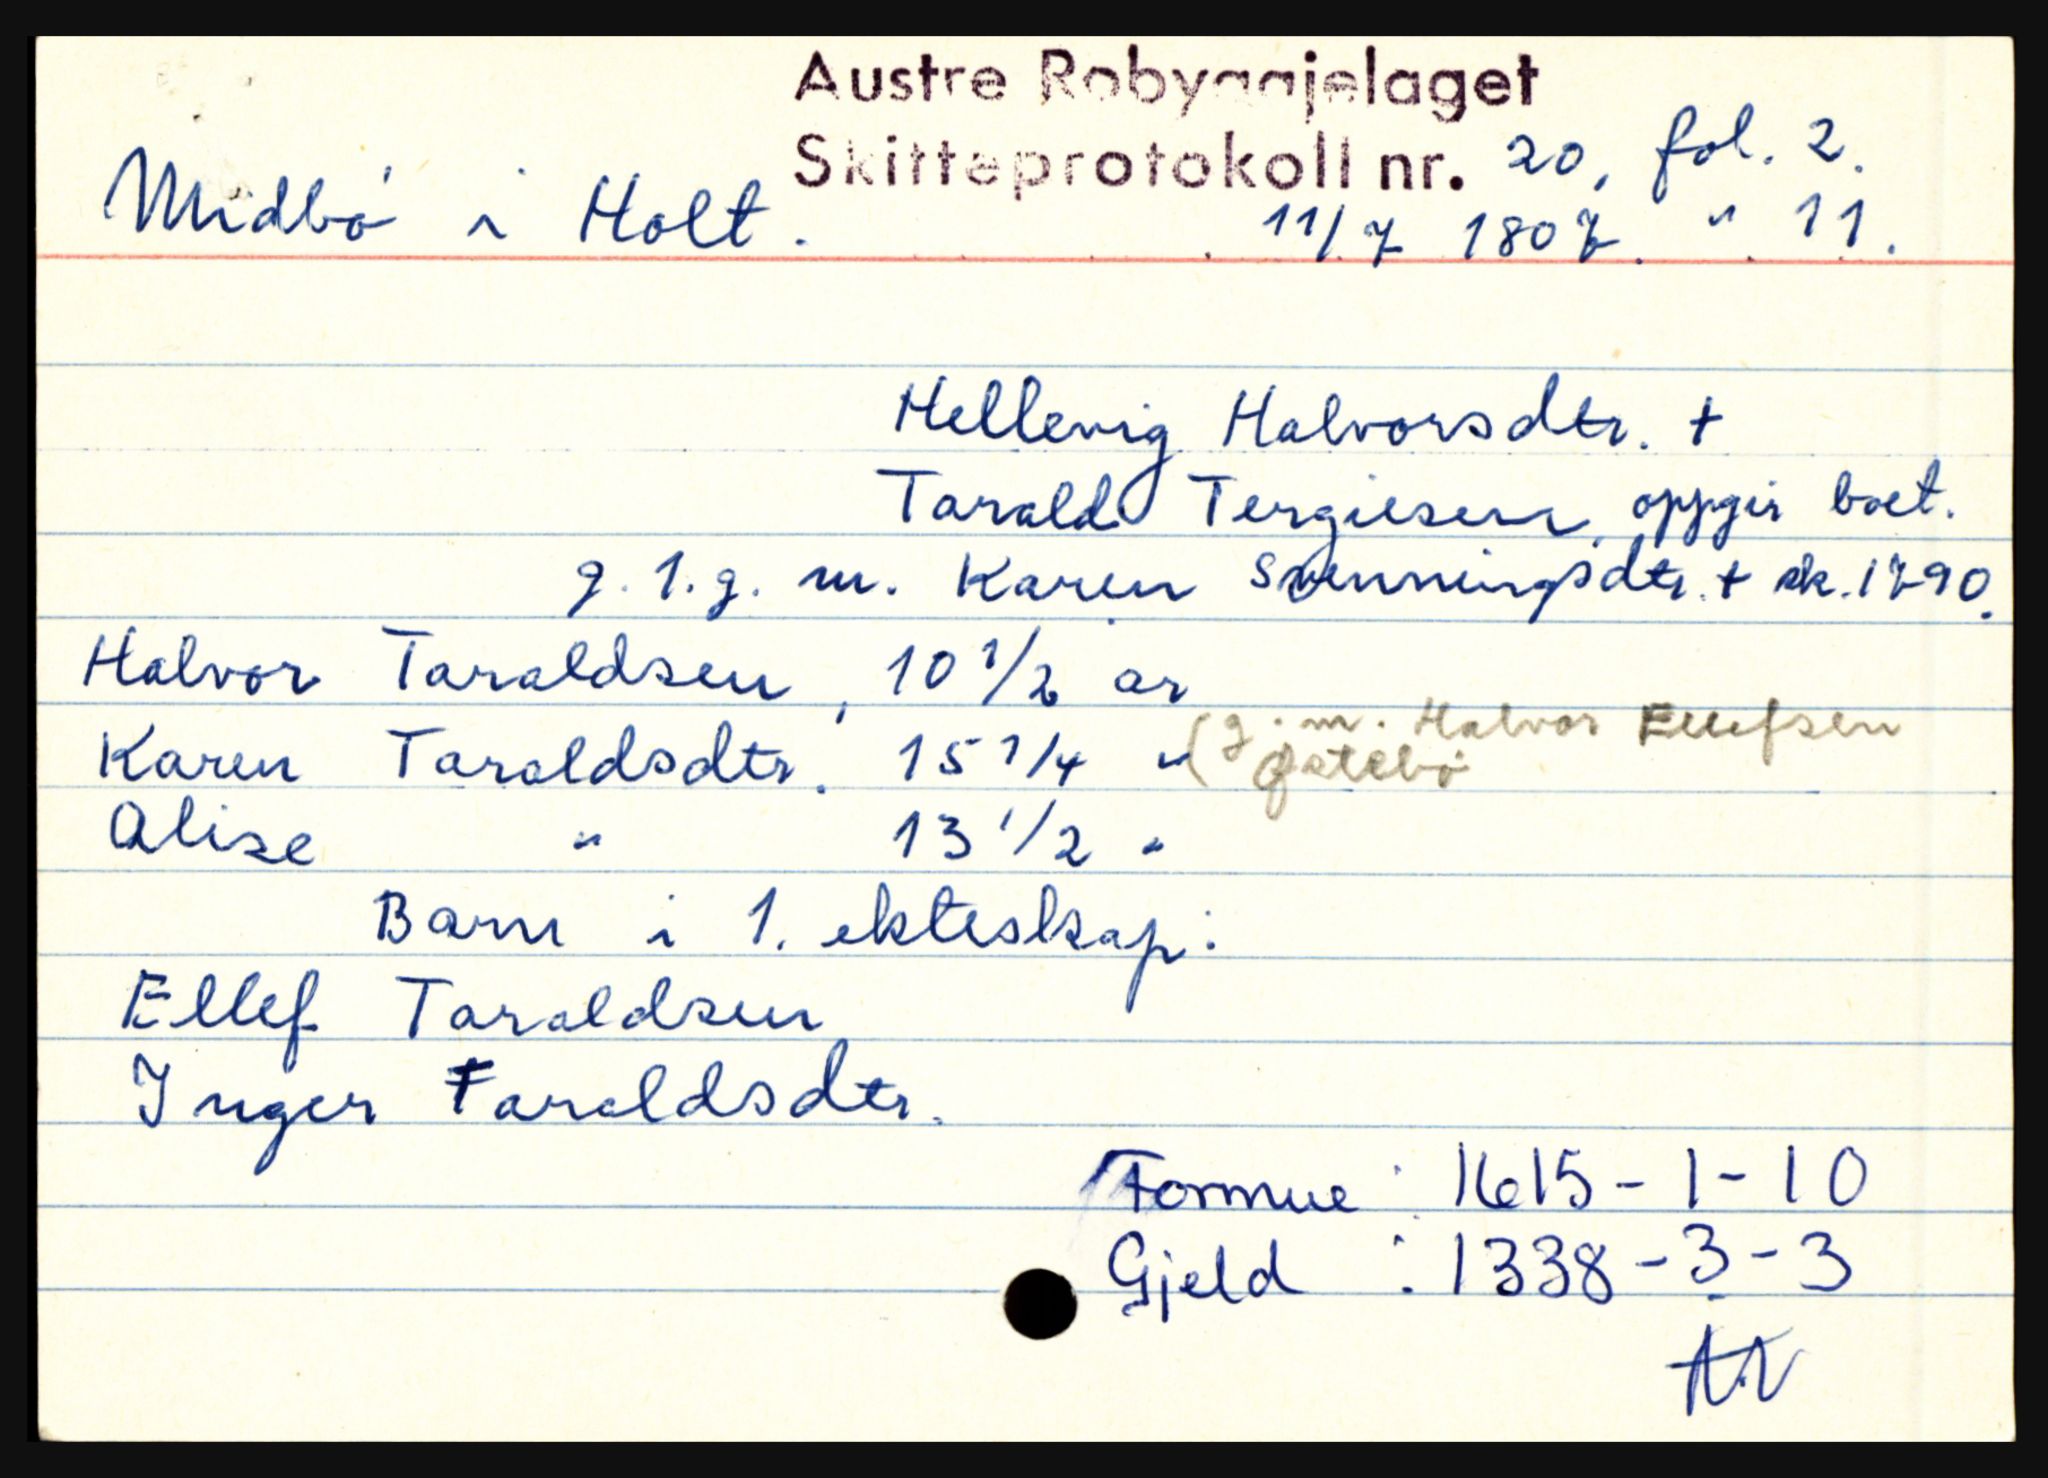 Austre Robyggjelaget
Skifteprotokoll nr. 20, fol. 2.
Midbö i Holt. 11/7 1807. " 11.
Hellevig Halvorsdtr. +
Tarald Tergiesen, oppgir boet.
g. 1. g. m. Karen Svenningsdtr. + sk. 1790.
Halvor Taraldsen, 10 1/2 år
Karen Taraldsdtr. 15 1/4 " (g. m. Halvor Ellefsen
Gatebö
Alise " 13 1/2 "
Barn i 1. ekteskap:
Ellef Taraldsen
Inger Taraldsdtr.
Formue : 1615 - 1 - 10
Gjeld : 1338 - 3 - 3